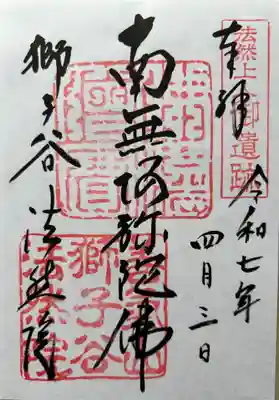 法然上人御遺跡
奉拝
令和七年
四月三日
南無阿弥陀佛
獅子谷
法然院
獅子谷 法然院